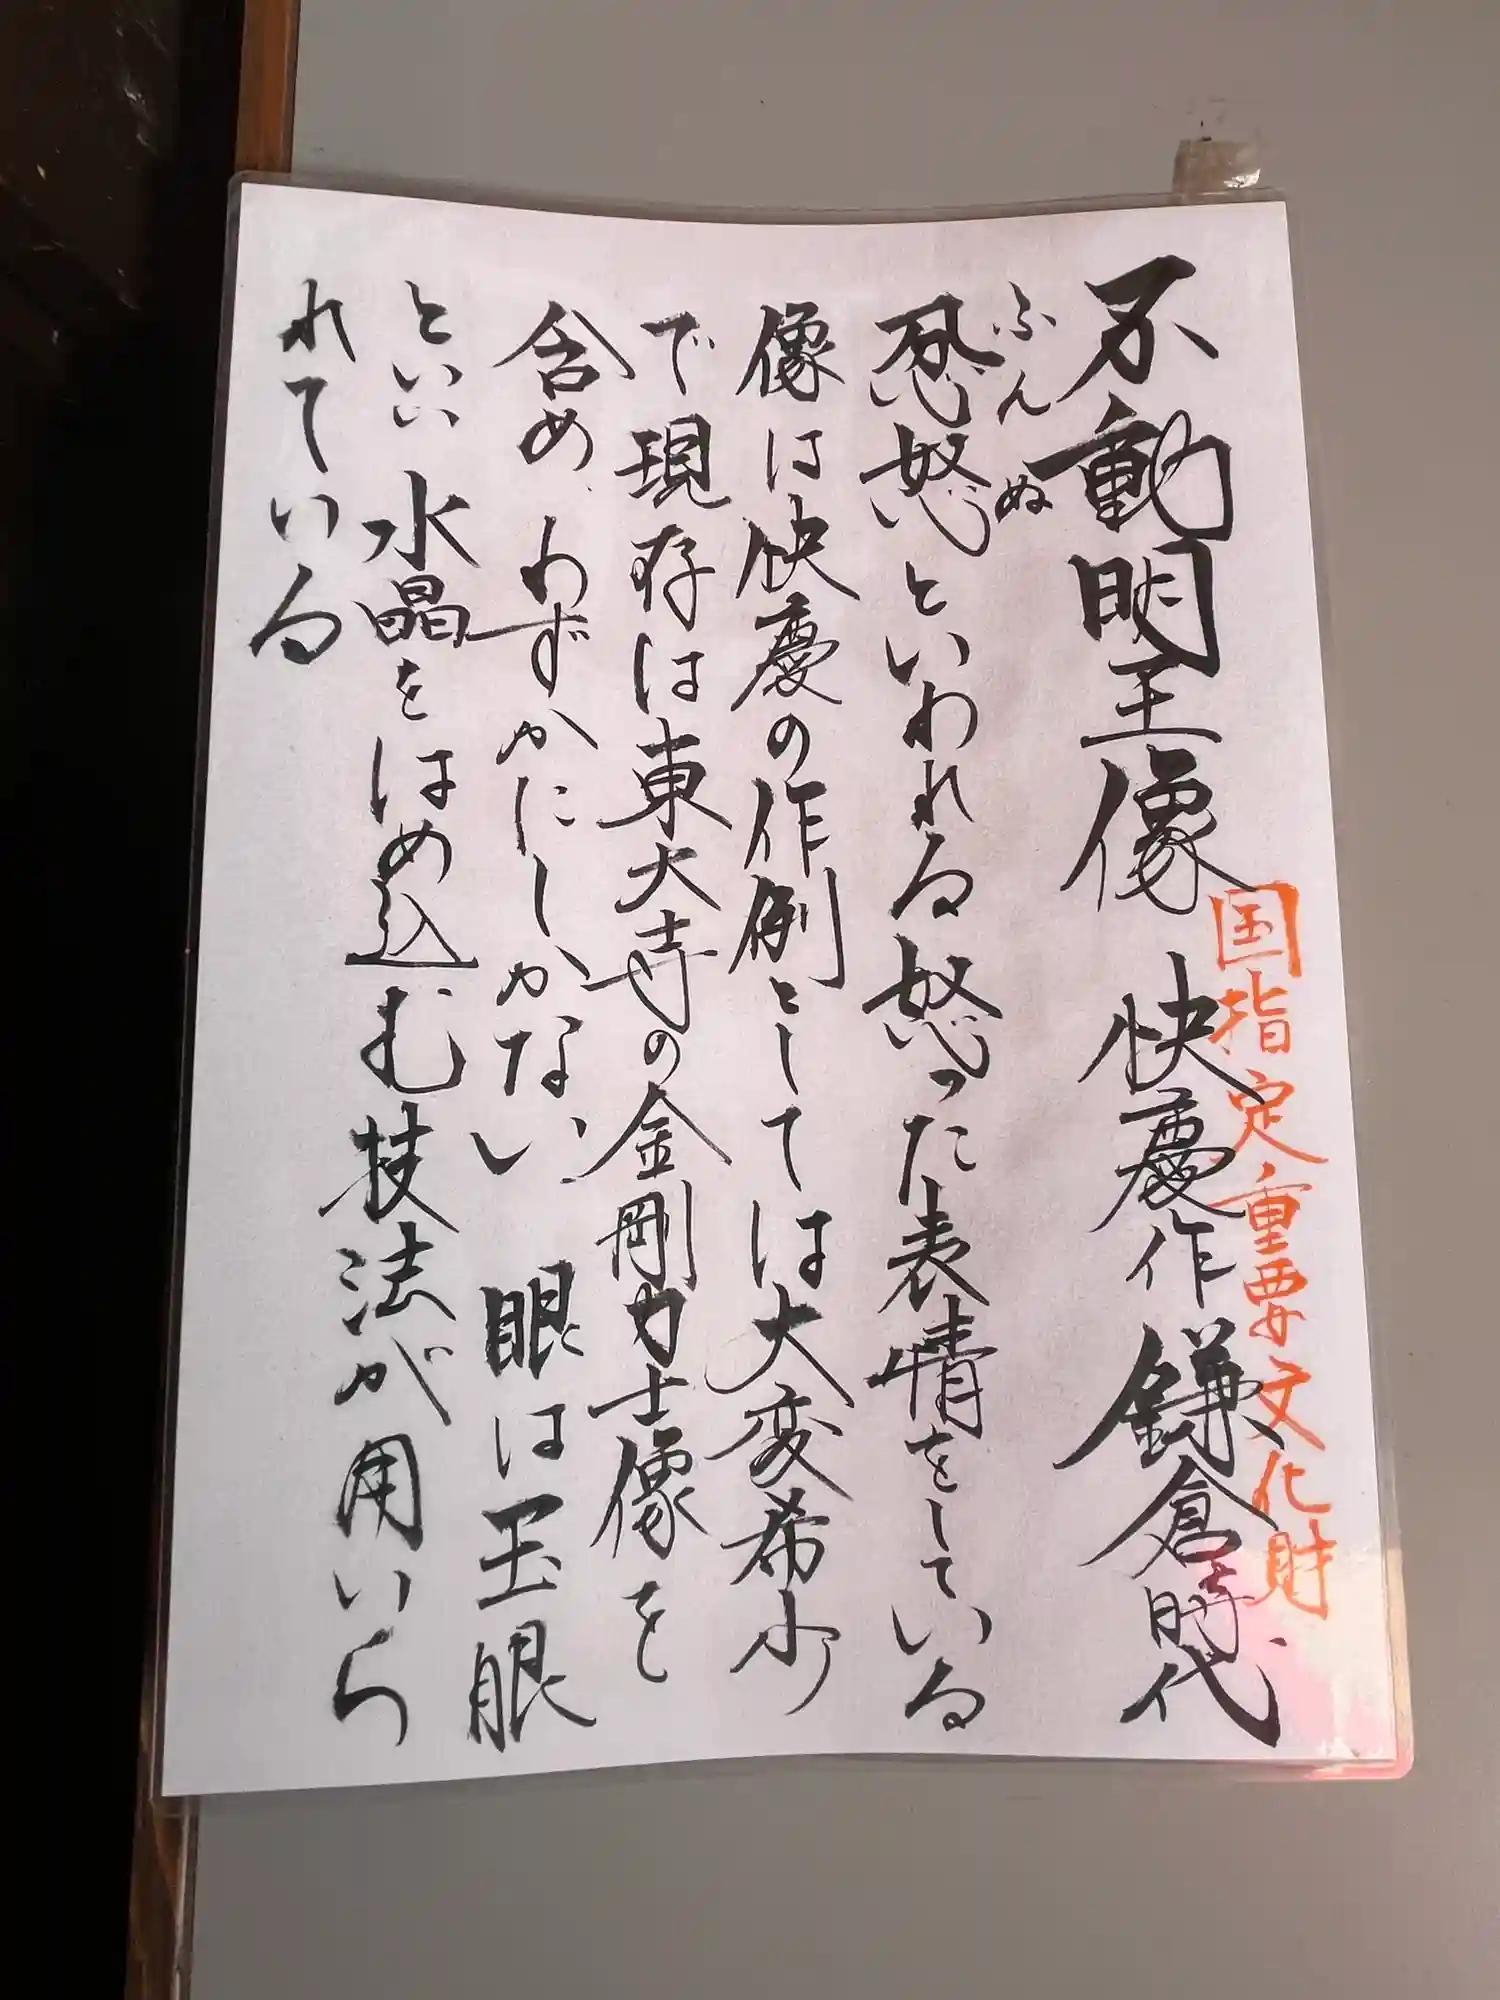 国指定重要文化財
不動明王像 快慶作 鎌倉時代
ふんぬ
忿怒といわれる怒った表情をしている
像は快慶の作例としては大変希少
で現存は東大寺の金剛力士像を
含め、わずかにしかない、眼は玉眼
といい水晶をはめ込む技法が用いら
れている